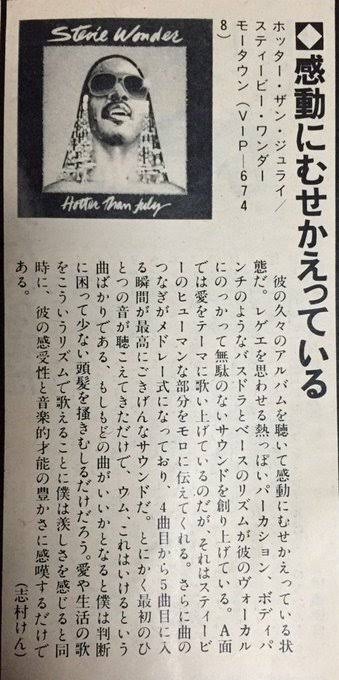 ◆感動にむせかえっている
ホッター・ザン・ジュライ／
スティービー・ワンダー
モータウン（ＶＩＰ―６７４
８）
Stevie Wonder
Hotter Than July
彼の久々のアルバムを聴いて感動にむせかえっている状
態だ。レゲエを思わせる熱っぽいパーカション、ボディパ
ンチのようなバスドラとベースのリズムが彼のヴォーカル
にのっかって無駄のないサウンドを創り上げている。Ａ面
では愛をテーマに歌い上げているのだが、それはスティービ
ーのヒューマンな部分をモロに伝えてくれる。さらに曲の
つなぎがメドレー式になっており、４曲目から５曲目に入
る瞬間が最高にごきげんなサウンドだ。とにかく最初のひ
とつの音が聴こえてきただけで、ウム、これはいけるという
曲ばかりである、もしもどの曲がいいかとなると僕は判断
に困って少ない頭髪を掻きむしるだけだろう。愛や生活の歌
をこういうリズムで歌えることに僕は羨しさを感じると同
時に、彼の感受性と音楽的才能の豊かさに感嘆するだけで
ある。
（志村けん）